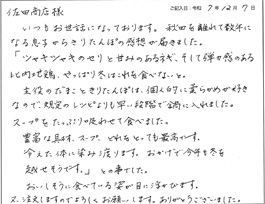 佐田商店様
記入日:令和 7年12月7日
いつもお世話になっております。秋田を離れて数年に
なる息子からきりたんぽの感想が届きました。
「シャキシャキのせりと甘みのあるネギ、そして弾力感のある
比内地鶏、やっぱり冬はこれを食べないと。
主役のだまことときりたんぽは、個人的に柔らかめが好き
なので、規定のレシピよりも早い段階で鍋に入れました。
スープをたっぷり吸わせて食べました。
豊富な具材、スープ、どれをとっても最高です。
冷えた体に染み渡ります。おかげで今年も冬を
越せそうです。」との事でした。
おいしそうに食べている姿が目に浮かびます。
又、注文しますのでよろしくお願いします。ありがとうございました。